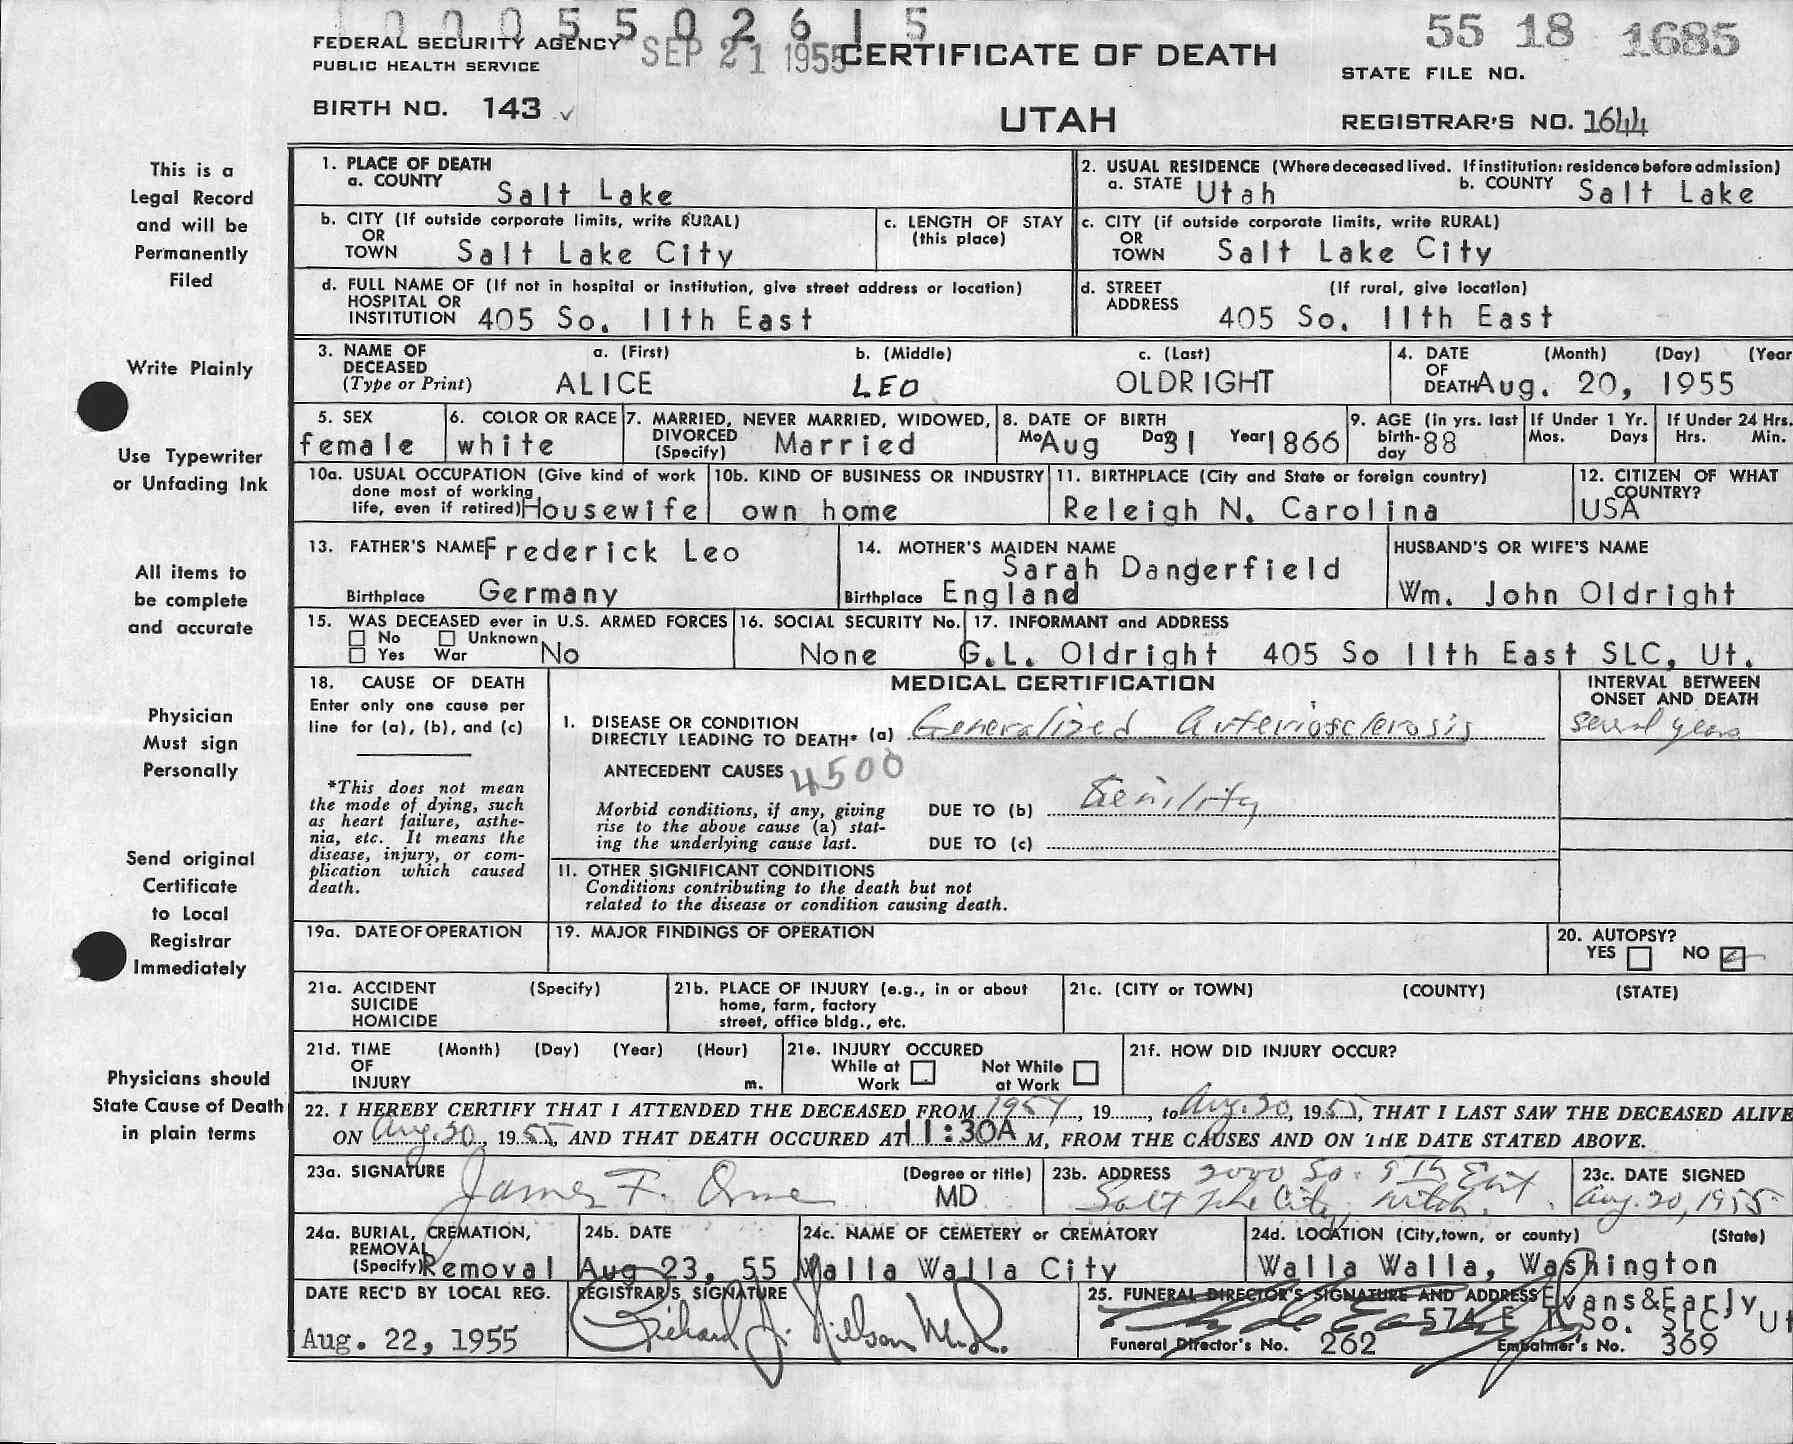 1 0 0 0 5 5 0 2 6 1 5
FEDERAL SECURITY AGENCY
PUBLIC HEALTH SERVICE
SEP 21 1955
CERTIFICATE OF DEATH
55 18 1685
STATE FILE NO.
BIRTH NO. 143
UTAH
REGISTRAR'S NO. 1644
This is a
Legal Record
and will be
Permanently
Filed
Write Plainly
Use Typewriter
or Unfading Ink
All items to
be complete
and accurate
Physician
Must sign
Personally
Send original
Certificate
to Local
Registrar
Immediately
Physicians should
State Cause of Death
in plain terms
1. PLACE OF DEATH
a. COUNTY Salt Lake
2. USUAL RESIDENCE (Where deceased lived. If institution: residence before admission)
a. STATE Utah b. COUNTY Salt Lake
b. CITY (If outside corporate limits, write RURAL)
OR
TOWN Salt Lake City
c. LENGTH OF STAY
(this place)
c. CITY (if outside corporate limits, write RURAL)
OR
TOWN Salt Lake City
d. FULL NAME OF (If not in hospital or institution, give street address or location)
HOSPITAL OR
INSTITUTION 405 So. 11th East
d. STREET (If rural, give location)
ADDRESS
405 So. 11th East
3. NAME OF a. (First) b. (Middle) c. (Last)
DECEASED
(Type or Print) ALICE LEO OLDRIGHT
4. DATE (Month) (Day) (Year
OF
DEATH Aug. 20, 1955
5. SEX
female
6. COLOR OR RACE
white
7. MARRIED, NEVER MARRIED, WIDOWED,
DIVORCED
(Specify) Married
8. DATE OF BIRTH
Mo Aug Da 31 Year 1866
9. AGE (in yrs. last
birth-
day 88
If Under 1 Yr.
Mos. Days
If Under 24 Hrs.
Hrs. Min.
10a. USUAL OCCUPATION (Give kind of work
done most of working
life, even if retired) Housewife
10b. KIND OF BUSINESS OR INDUSTRY
own home
11. BIRTHPLACE (City and State or foreign country)
Releigh N. Carolina
12. CITIZEN OF WHAT
COUNTRY?
USA
13. FATHER'S NAME Frederick Leo
Birthplace Germany
14. MOTHER'S MAIDEN NAME
Sarah Dangerfield
Birthplace England
HUSBAND'S OR WIFE'S NAME
Wm. John Oldright
15. WAS DECEASED ever in U.S. ARMED FORCES
No Unknown
Yes War No
16. SOCIAL SECURITY No.
None
17. INFORMANT and ADDRESS
G.L. Oldright 405 So 11th East SLC, Ut.
18. CAUSE OF DEATH
Enter only one cause per
line for (a), (b), and (c)
*This does not mean
the mode of dying, such
as heart failure, asthe-
nia, etc. It means the
disease, injury, or com-
plication which caused
death.
MEDICAL CERTIFICATION
INTERVAL BETWEEN
ONSET AND DEATH
I. DISEASE OR CONDITION
DIRECTLY LEADING TO DEATH* (a) Generalized Arteriosclerosis
several years
ANTECEDENT CAUSES 4500
Morbid conditions, if any, giving
rise to the above cause (a) stat-
ing the underlying cause last.
DUE TO (b) Senility
DUE TO (c)
II. OTHER SIGNIFICANT CONDITIONS
Conditions contributing to the death but not
related to the disease or condition causing death.
19a. DATE OF OPERATION
19. MAJOR FINDINGS OF OPERATION
20. AUTOPSY?
YES NO
21a. ACCIDENT (Specify)
SUICIDE
HOMICIDE
21b. PLACE OF INJURY (e.g., in or about
home, farm, factory
street, office bldg., etc.
21c. (CITY or TOWN) (COUNTY) (STATE)
21d. TIME (Month) (Day) (Year) (Hour)
OF
INJURY m.
21e. INJURY OCCURED
While at Not While
Work at Work
21f. HOW DID INJURY OCCUR?
22. I HEREBY CERTIFY THAT I ATTENDED THE DECEASED FROM 1954, 19......, to Aug. 20, 1955, THAT I LAST SAW THE DECEASED ALIVE
ON Aug. 20, 1955, AND THAT DEATH OCCURED AT 11:30A M, FROM THE CAUSES AND ON THE DATE STATED ABOVE.
23a. SIGNATURE (Degree or title)
James F. Orme MD
23b. ADDRESS 2000 So. 9th East
Salt Lake City, Utah.
23c. DATE SIGNED
Aug. 20, 1955
24a. BURIAL, CREMATION,
REMOVAL
(Specify) Removal
24b. DATE
Aug 23, 55
24c. NAME OF CEMETERY or CREMATORY
Walla Walla City
24d. LOCATION (City, town, or county) (State)
Walla Walla, Washington
DATE REC'D BY LOCAL REG.
Aug. 22, 1955
REGISTRAR'S SIGNATURE
Richard J. Nielson M.D.
25. FUNERAL DIRECTOR'S SIGNATURE AND ADDRESS Evans&Early
574 E So. SLC Ut
Funeral Director's No. 262 Embalmer's No. 369